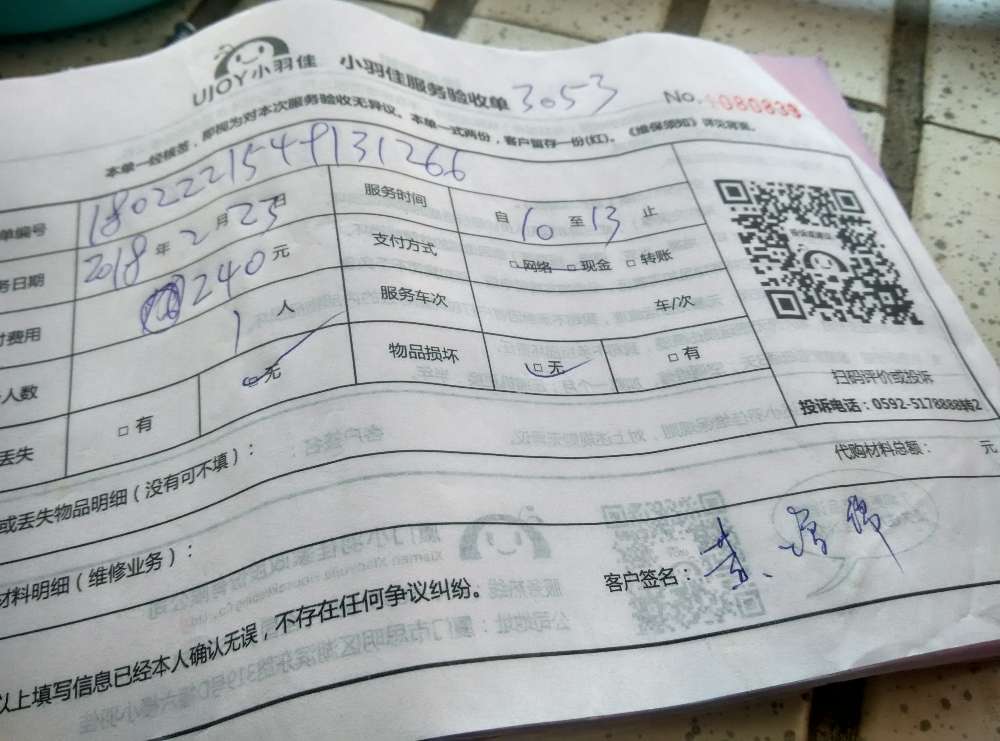 UJOY小羽佳 小羽佳服务验收单 3053 No. 1080839
本单一经核签，即视为对本次服务验收无异议。本单一式两份，客户留存一份(红)。《维保须知》详见背面。
单编号 1802221549131266
务日期 2018年2月23日 服务时间 自10至13止
付费用 240元 支付方式 □网络 □现金 □转账
人数 1人 服务车次 车/次
丢失 □有 □无 物品损坏 □无 □有
扫码评价或投诉
投诉电话：0592-5178888转2
或丢失物品明细（没有可不填）：
代购材料总额： 元
材料明细（维修业务）：
客户签名：
以上填写信息已经本人确认无误，不存在任何争议纠纷。